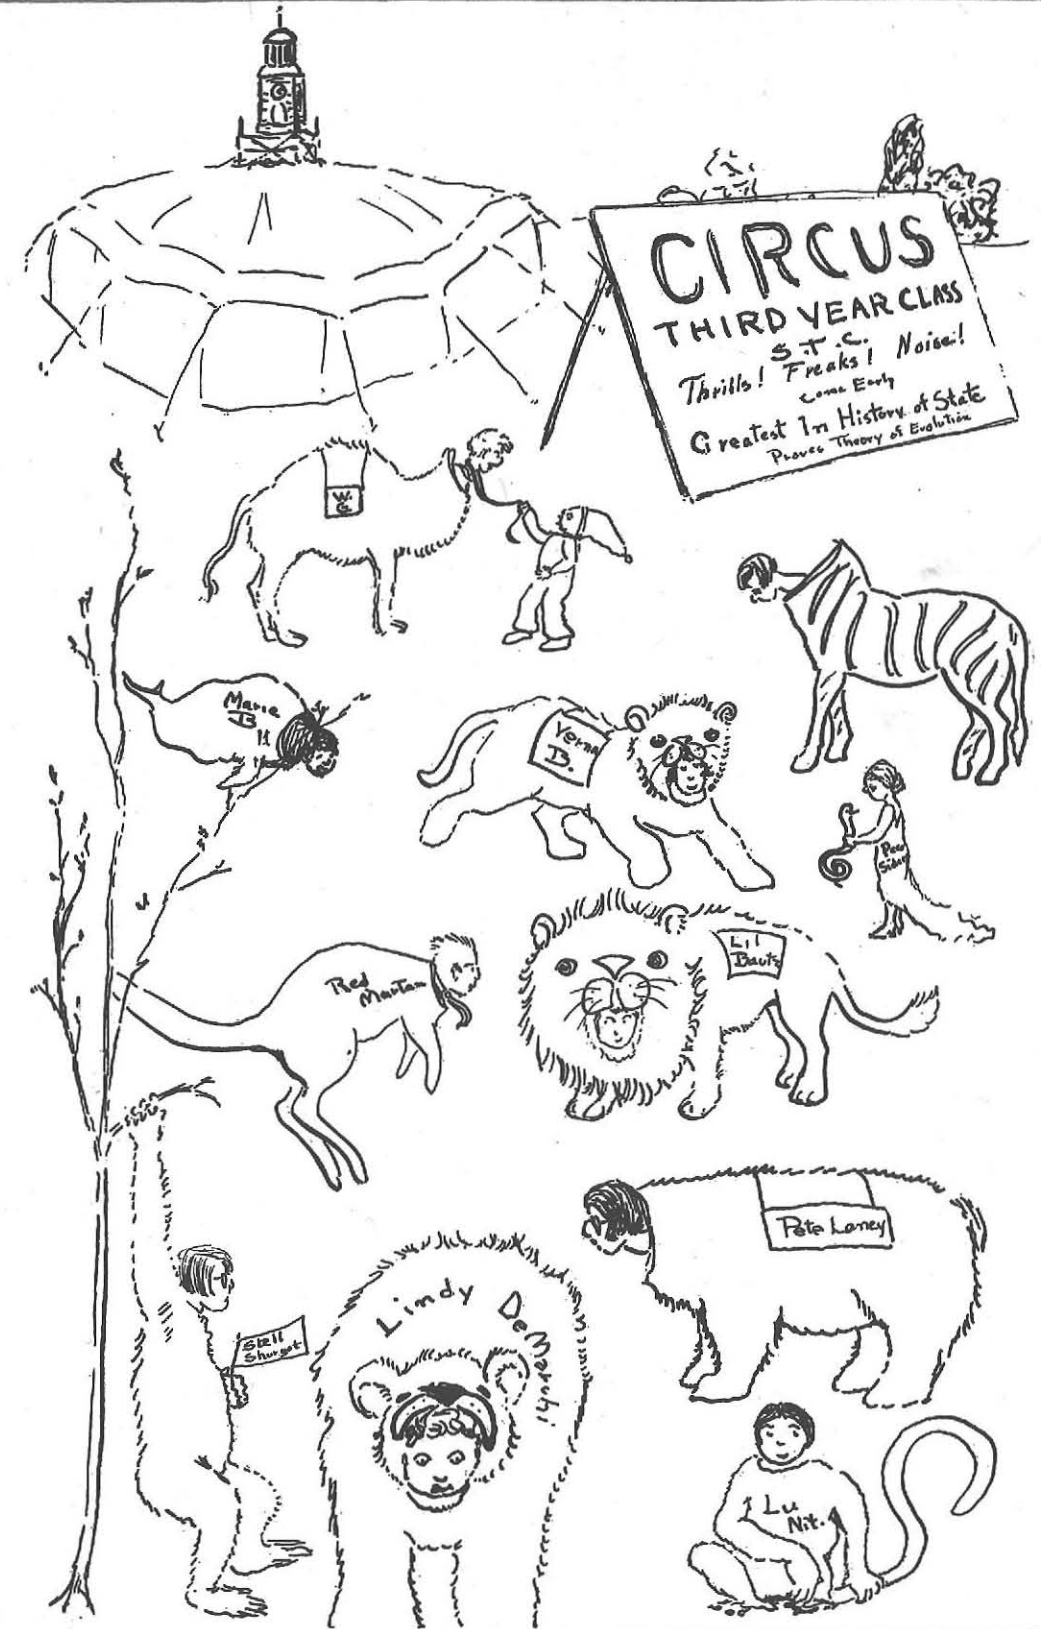 CIRCUS
THIRD YEAR CLASS
S.T.C.
Thrills! Freaks! Noise!
Come Early
Greatest In History of State
Proves Theory of Evolution
W.
G.
Marie
B
Verna
B.
Red
Lil
Bautz
Pete Laney
Stell
Shurgot
Lindy
Lu
Nit.